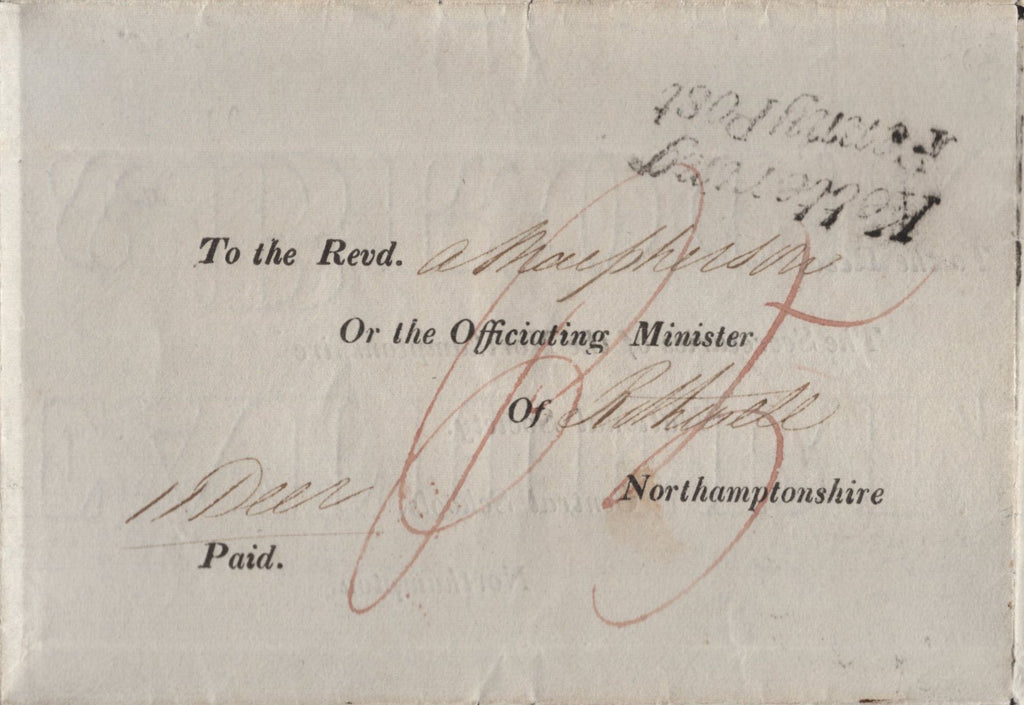 Kettering
Penny Post
To the Revd. A Macpherson
Or the Officiating Minister
Of Rothwell
Northamptonshire
Paid.